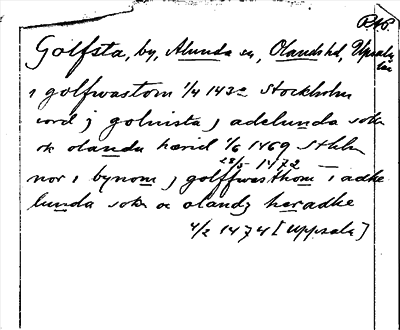 RAP.
Golfsta, by, Alunda sn, Olands hd, Upsala län
i golfwastom 1/4 1432 Stockholm
iord j goluista j adelunda sokn
ok olandu hærid 1/6 1469 Sthlm
28/5 1472
nor i bynom j golffwasthom i adhe
lunda sokn oc olandz heradhe
4/2 1474 [Uppsala]